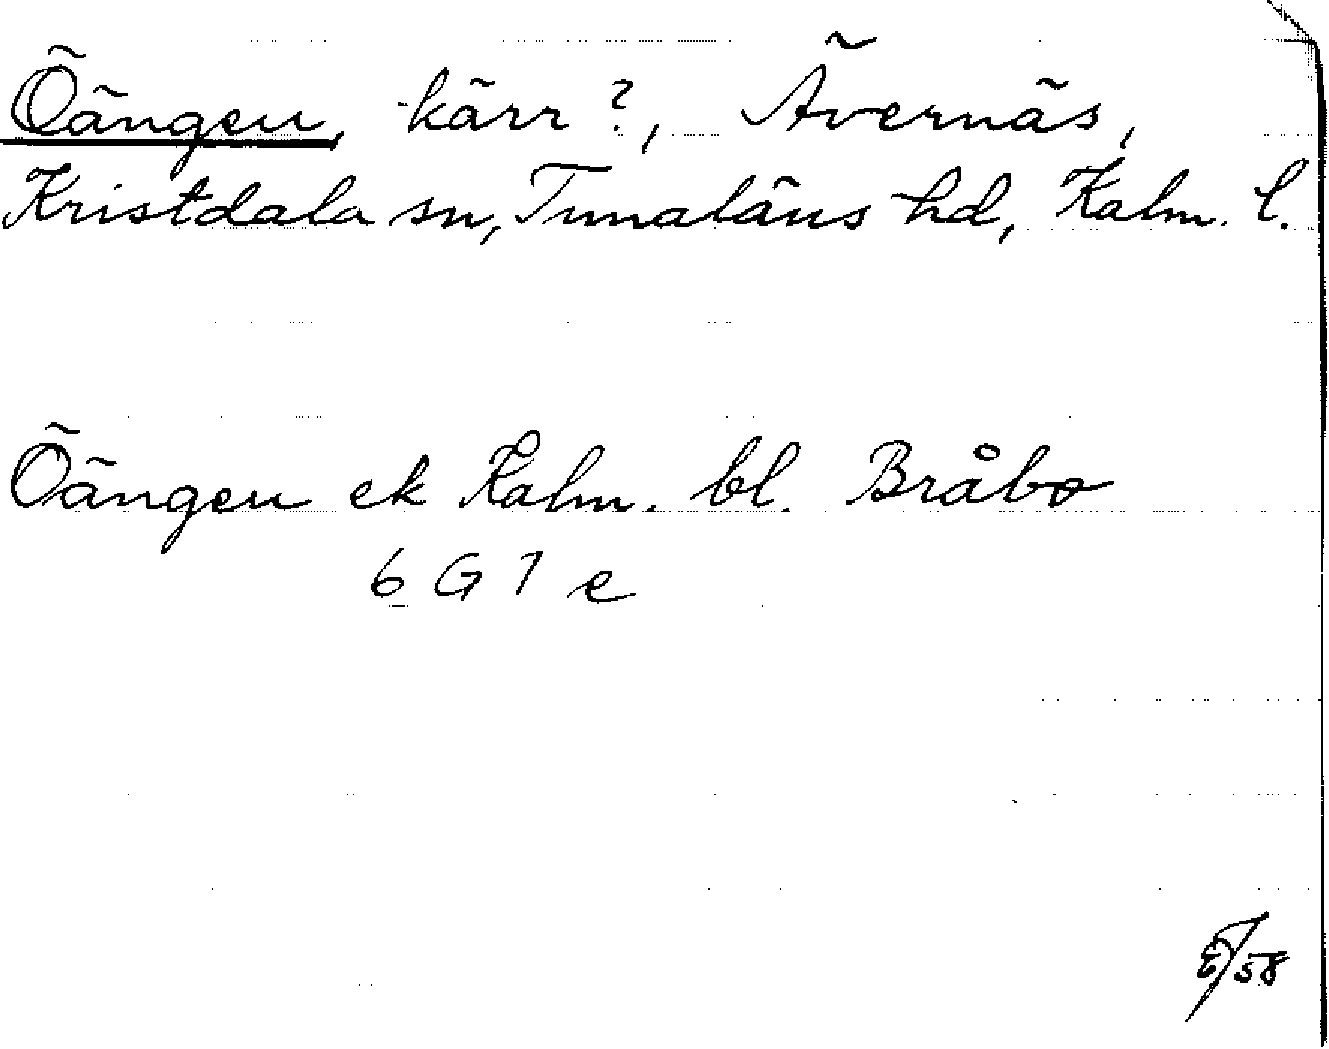 Öängen, kärr?, Ävernäs,
Kristdala sn, Tunaläns hd, Kalm. l.
Öängen ek Kalm. bl. Bråbo
6 G 1 e
/58